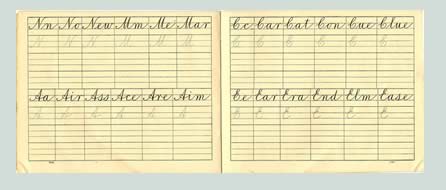 Nn No New Mm Me Mar
N N N M M M
Aa Air Ass Ace Are Aim
A A A A A A
Cc Car Cat Con Cue Clue
C C C C C C
Ee Ear Era End Elm Ease
E E E E E E